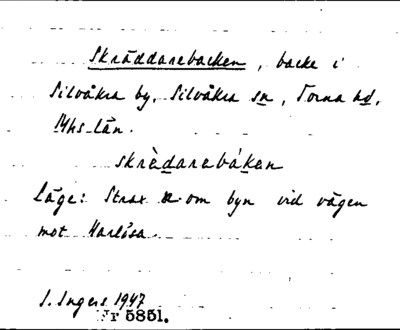 Skräddarebacken, backe i
Silvåkra by, Silvåkra sn, Torna hd,
Mhs län.
skrèdarebáken
Läge: Strax om byn vid vägen
mot Harlösa.
I. Ingers 1947
Nr 5851.